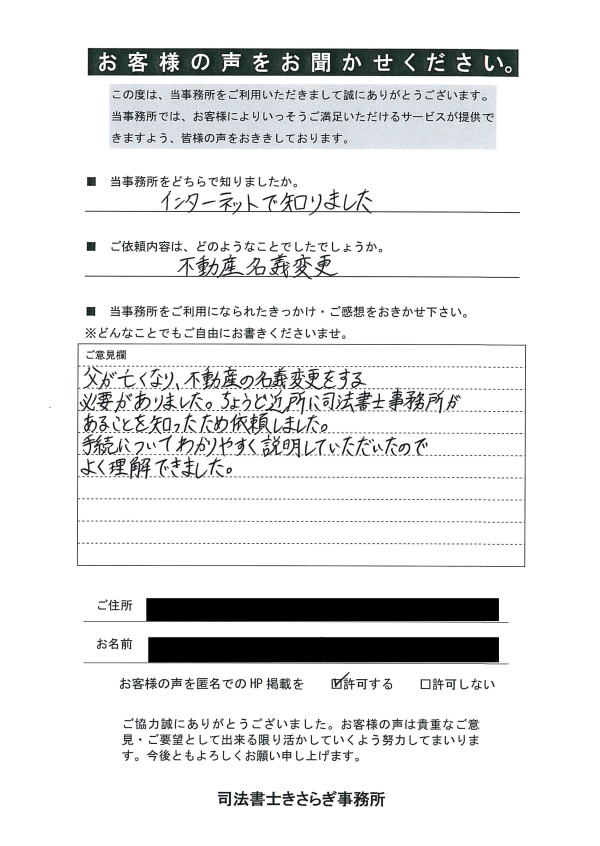 お客様の声をお聞かせください。
この度は、当事務所をご利用いただきまして誠にありがとうございます。
当事務所では、お客様によりいっそうご満足いただけるサービスが提供で
きますよう、皆様の声をおききしております。
■ 当事務所をどちらで知りましたか。
インターネットで知りました
■ ご依頼内容は、どのようなことでしたでしょうか。
不動産名義変更
■ 当事務所をご利用になられたきっかけ・ご感想をおきかせ下さい。
※どんなことでもご自由にお書きくださいませ。
ご意見欄
父が亡くなり、不動産の名義変更をする
必要がありました。ちょうど近所に司法書士事務所が
あることを知ったため依頼しました。
手続についてわかりやすく説明していただいたので
よく理解できました。
ご住所
お名前
お客様の声を匿名でのHP掲載を ☑許可する □許可しない
ご協力誠にありがとうございました。お客様の声は貴重なご意
見・ご要望として出来る限り活かしていくよう努力してまいりま
す。今後ともよろしくお願い申し上げます。
司法書士きさらぎ事務所